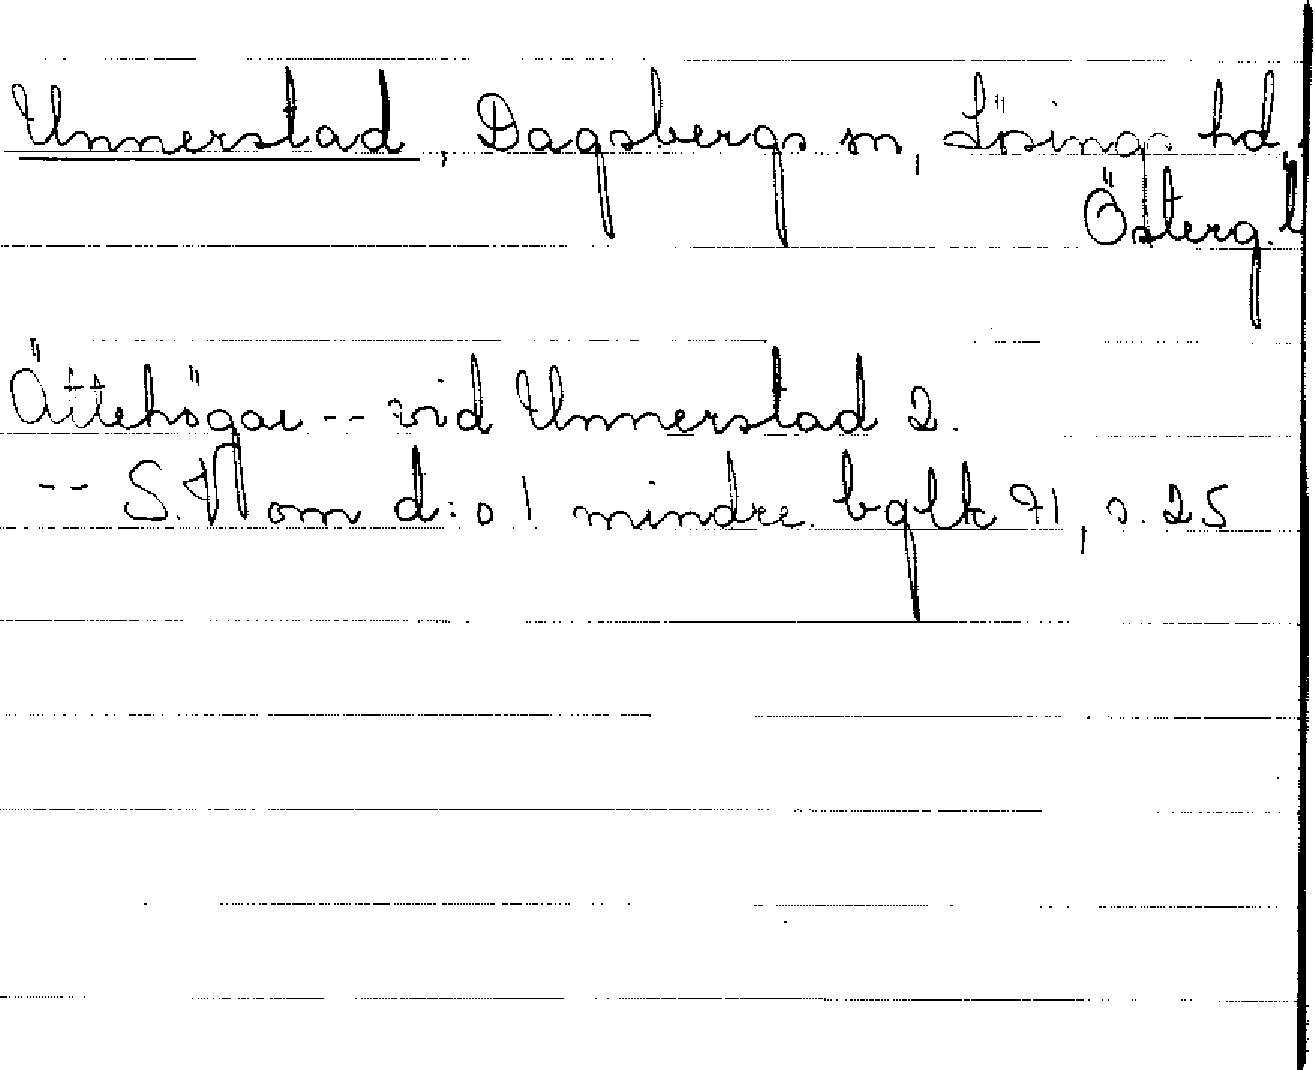 Unnerstad, Dagsbergs sn, Lösings hd,
Österg. l
Ättehögar -- vid Unnerstad 2.
-- S.V om d:o 1 mindre. bglk 71, s. 25